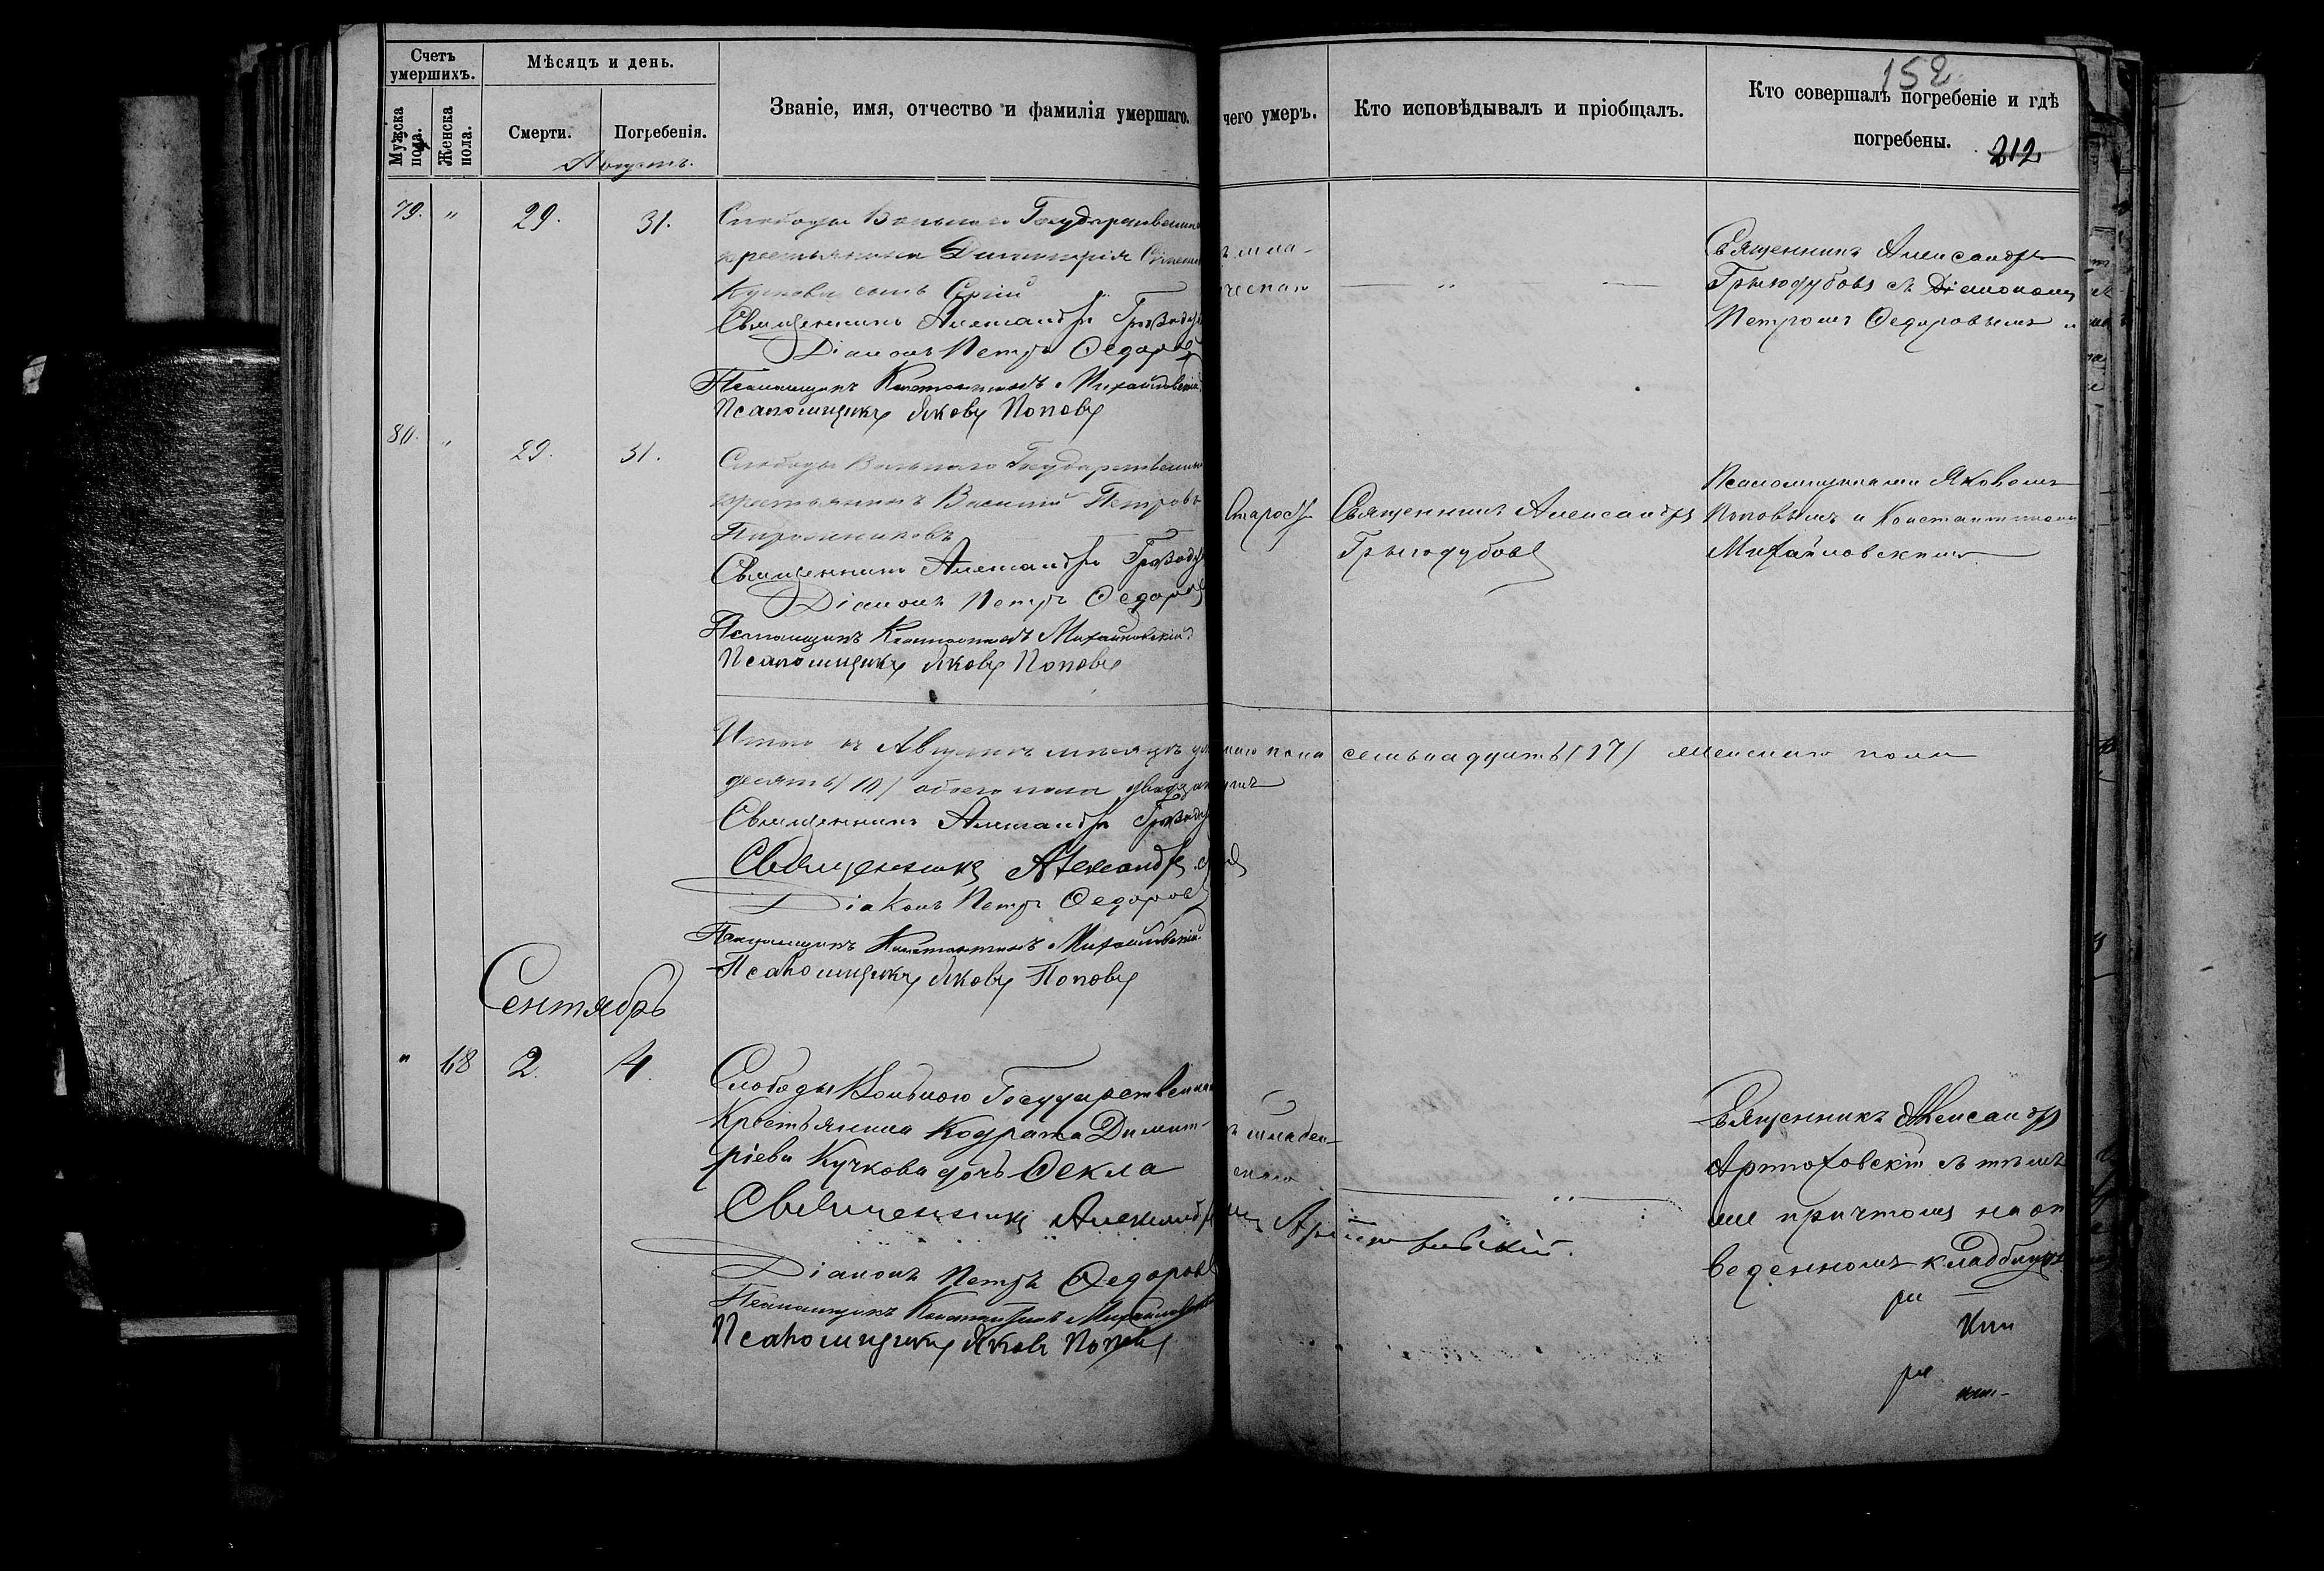 Счетъ умершихъ.
Мужска пола.
Женска пола.
Мѣсяцъ и день.
Смерти.
Погребенія.
Званіе, имя, отчество и фамилія умершаго.
чего умеръ.
Кто исповѣдывалъ и пріобщалъ.
Кто совершалъ погребеніе и гдѣ
погребены.
152
212
Августъ.
79. " 29. 31.
Слободы Вольнаго Государственна
крестьянина Димитрія
сынъ
Священникъ Александръ
Діаконъ Петръ Ѳедоровъ
Псаломщикъ Константинъ Михайловскій
Псаломщикъ Яковъ Поповъ
Священникъ Александръ
съ Діакономъ
Петромъ Ѳедоровымъ и
80. " 29. 31.
Слободы Вольнаго Государственна
крестьянинъ Василий Петровъ
Священникъ Александръ
Діаконъ Петръ Ѳедоровъ
Псаломщикъ Константинъ Михайловскій
Псаломщикъ Яковъ Поповъ
Священникъ Александръ
Псаломщиками Яковомъ
Поповымъ и Константиномъ
Михайловскимъ
Итого въ Августѣ мѣсяцѣ
наго пола семьнадцать /17/ женскаго пола
десять /10/ обоего пола
Священникъ Александръ
Священникъ Александръ
Діаконъ Петръ Ѳедоровъ
Псаломщикъ Константинъ Михайловскій
Псаломщикъ Яковъ Поповъ
Сентябрь
" 68 2. 4.
Слободы Вольнаго Государственна
Крестьянина Кодрата Димит-
ріева Кучкова дочь Ѳекла
младен-
Священникъ Александръ
Діаконъ Петръ Ѳедоровъ
Псаломщикъ Константинъ Михайловскій
Псаломщикъ Яковъ Поповъ
Священникъ Александръ
съ тѣмъ
же причтомъ на от
веденномъ кладбищѣ